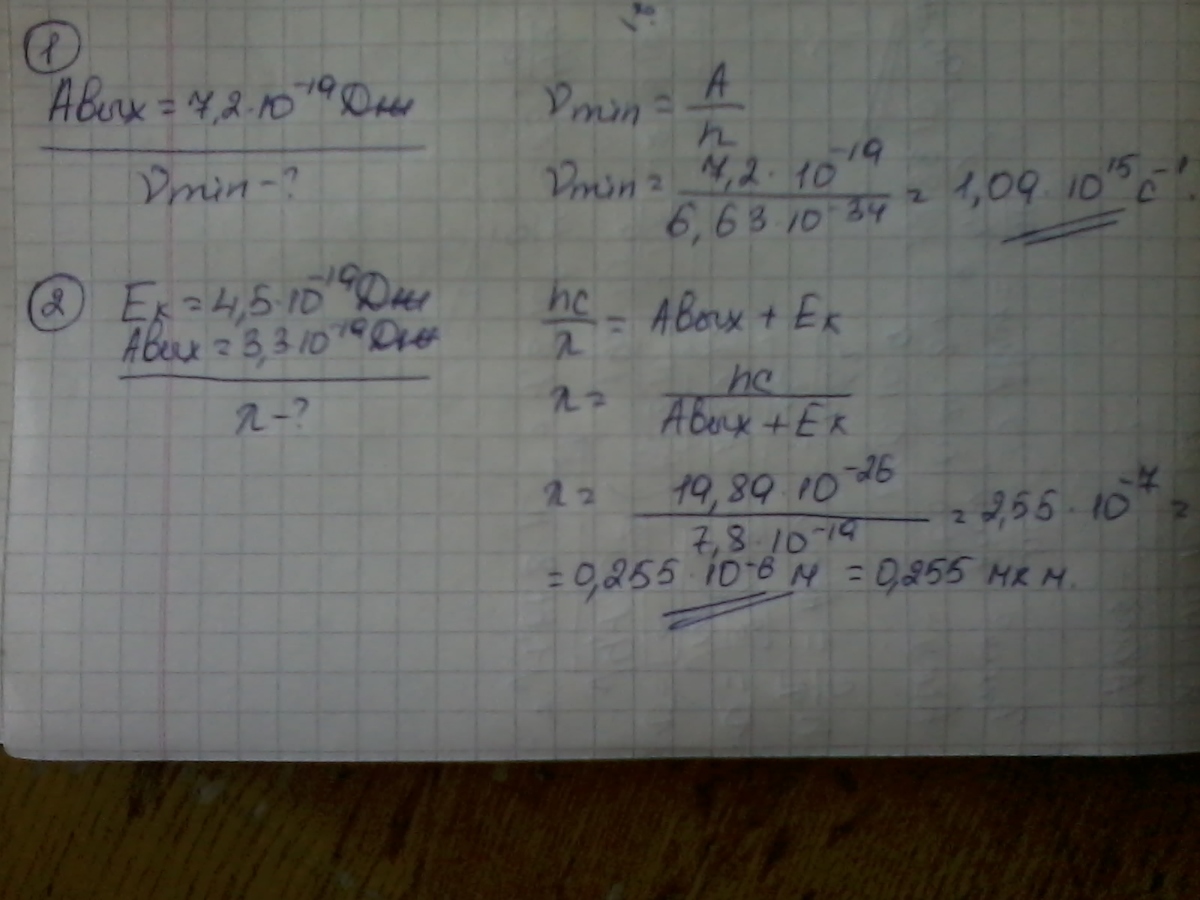 1
Aвых = 7,2·10⁻¹⁹ Дж
νmin - ?
νmin = A/h
νmin = 7,2·10⁻¹⁹ / 6,63·10⁻³⁴ = 1,09·10¹⁵ с⁻¹.
2
Eк = 4,5·10⁻¹⁹ Дж
Aвых = 3,3·10⁻¹⁹ Дж
λ - ?
hc/λ = Aвых + Eк
λ = hc / Aвых + Eк
λ = 19,89·10⁻²⁶ / 7,8·10⁻¹⁹ = 2,55·10⁻⁷ =
= 0,255·10⁻⁶ м = 0,255 мкм.